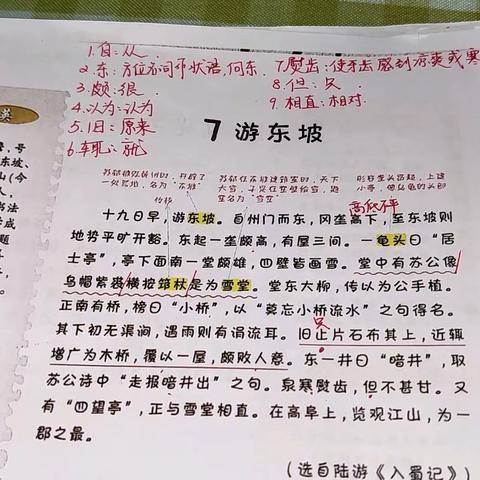 1.自：从
2.东：方位方词作状语，向东.
3.颇：很
4.以为：认为
5.旧：原来
6.辄：就
7.熨齿：使牙齿感到凉爽或寒
8.但：只
9.相直：相对.
7 游东坡
十九日早，游东坡。自州门而东，冈垄高下，至东坡则
地势平旷开豁。东起一垄颇高，有屋三间。一龟头曰“居
士亭”，亭下面南一堂颇雄，四壁皆画雪。堂中有苏公像，
乌帽紫裘，横按筇杖，是为雪堂。堂东大柳，传以为公手植。
正南有桥，榜曰“小桥”，以“莫忘小桥流水”之句得名。
其下初无渠涧，遇雨则有涓流耳。旧止片石布其上，近辄
增广为木桥，覆以一屋，颇败人意。东一井曰“暗井”，取
苏公诗中“走报暗井出”之句。泉寒熨齿，但不甚甘。又
有“四望亭”，正与雪堂相直。在高阜上，览观江山，为一
郡之最。
（选自陆游《入蜀记》）